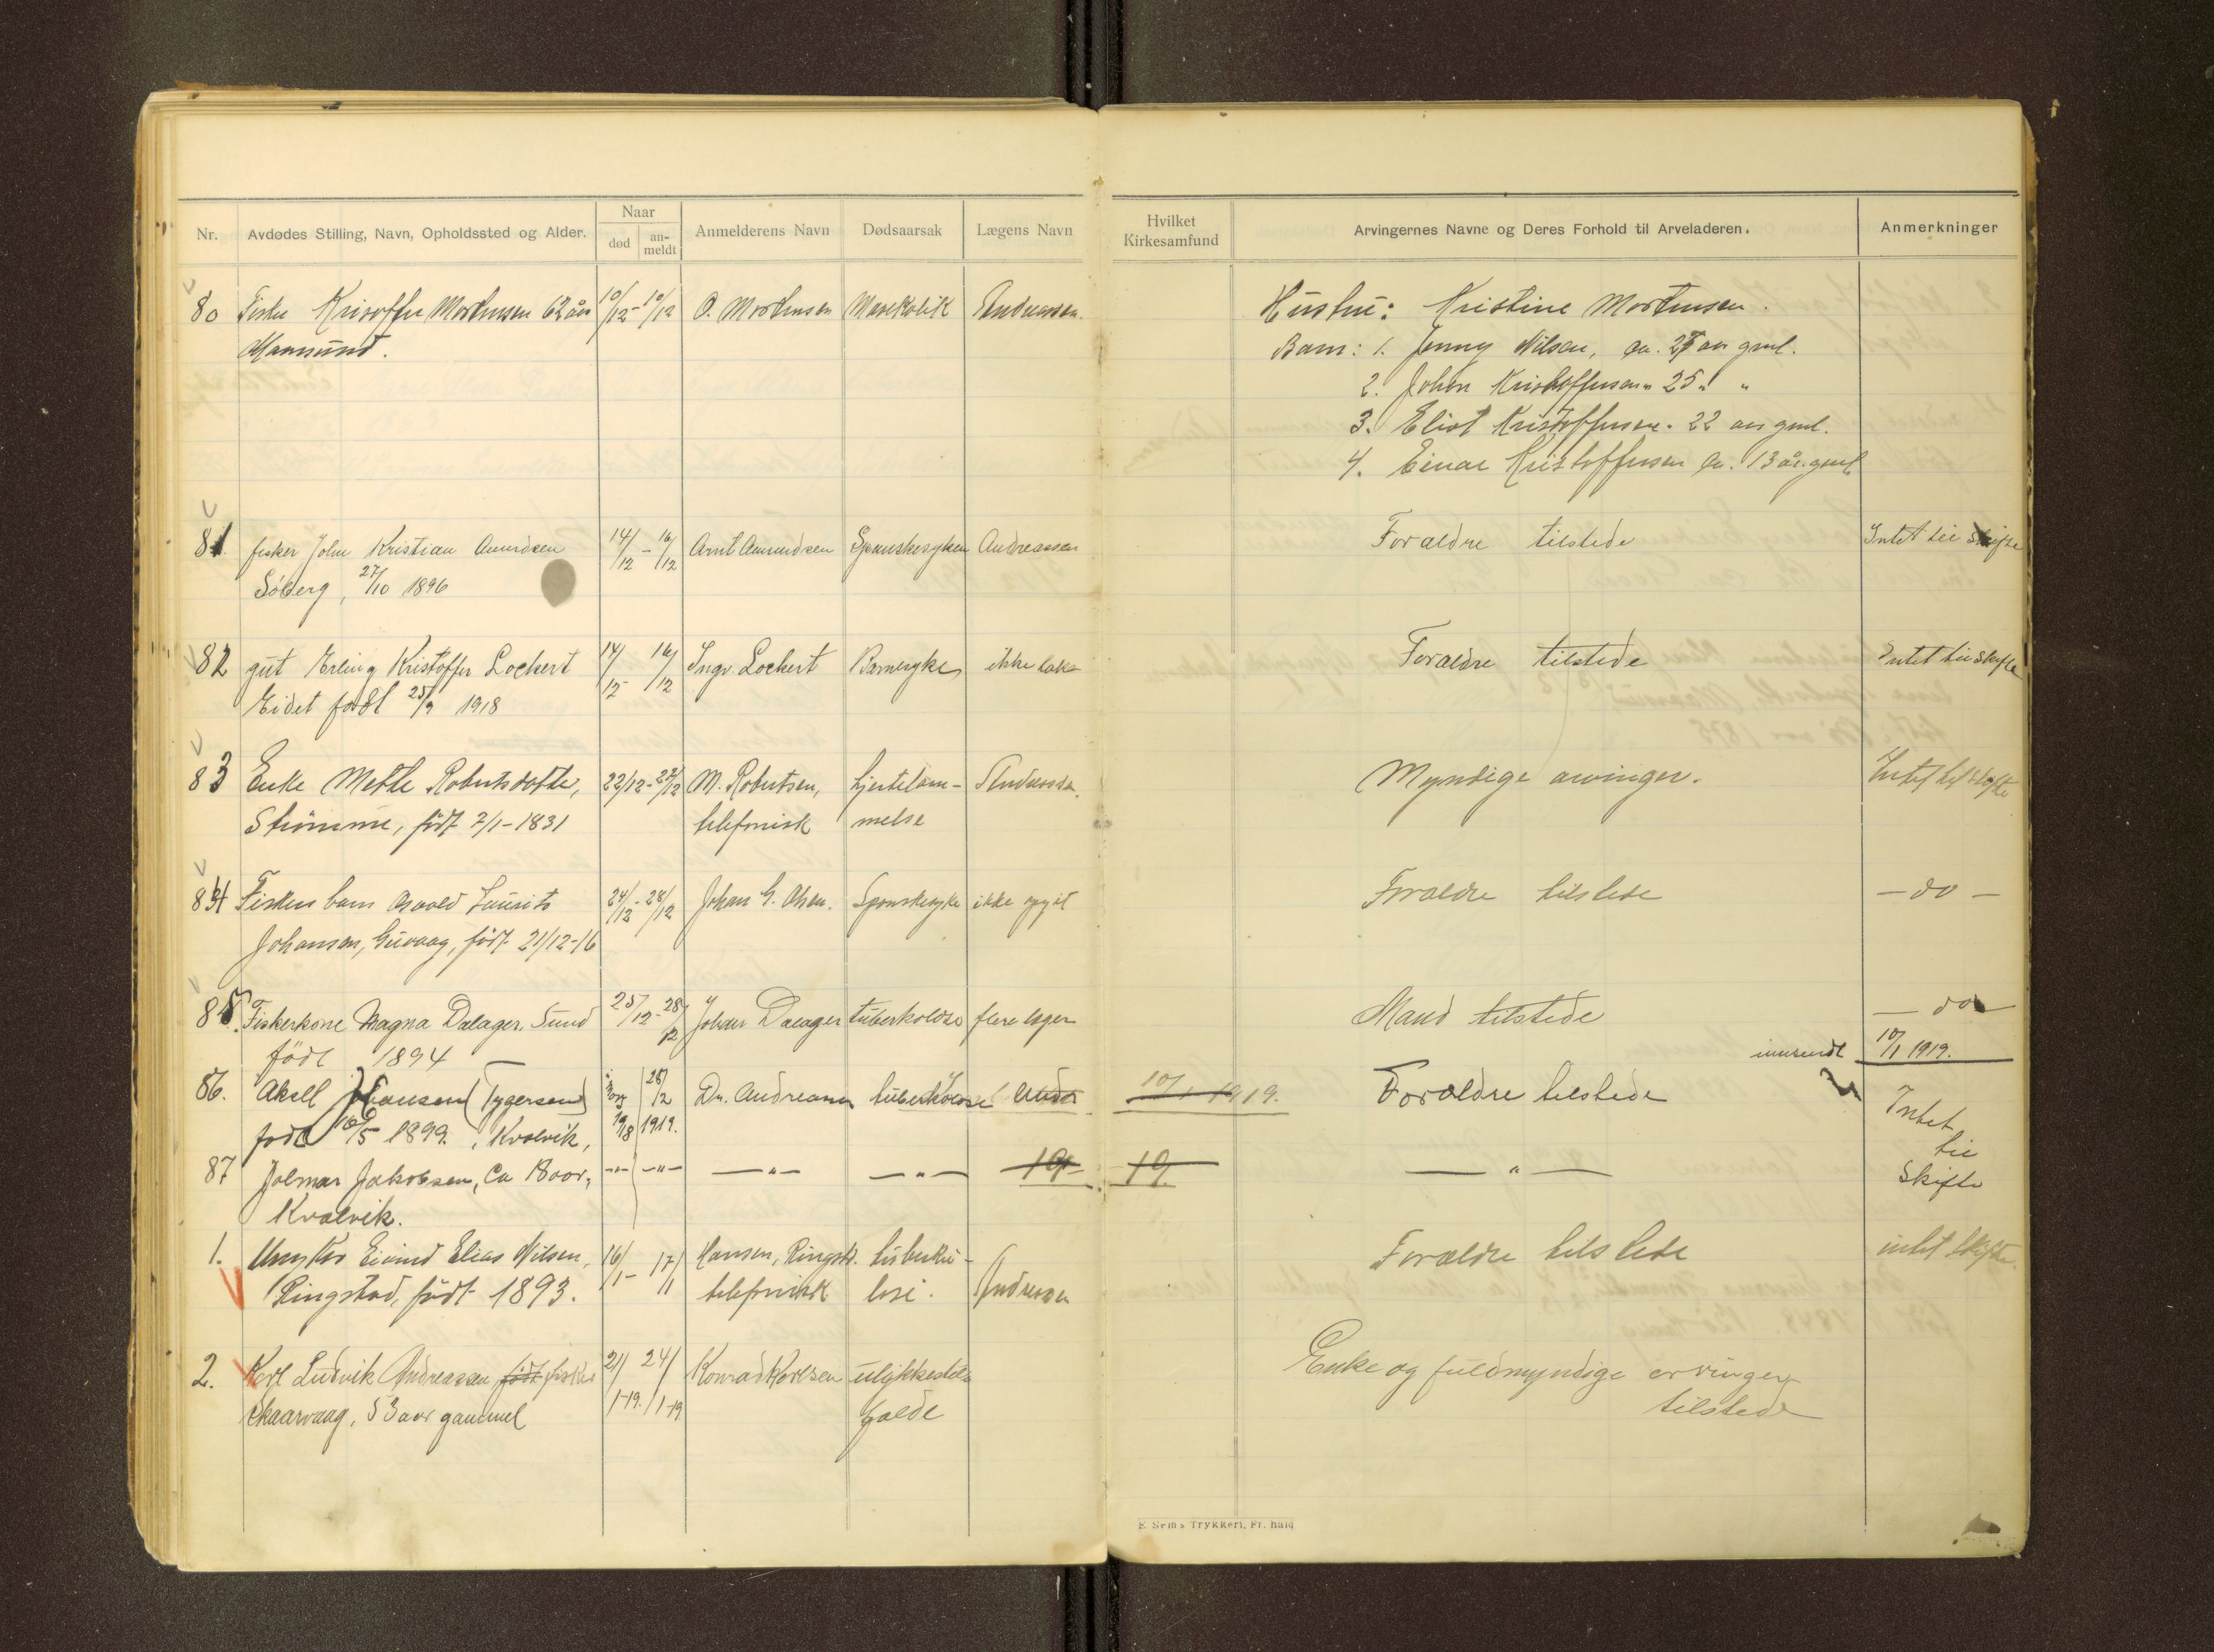 Nr.
Avdødes Stilling, Navn, Opholdssted og Alder.
Naar
død
an-
meldt
Anmelderens Navn
Dødsaarsak
Lægens Navn
Hvilket
Kirkesamfund
Arvingernes Navne og Deres Forhold til Arveladeren.
Anmerkninger
80 Fisker Kristoffer Mortensen 62 år 10/12 - 10/12 O. Mortensen Mavekolik Andreassen. Hustru: Kristine Mortensen.
Barn: 1. Jenny Nilsen, ca. aar gml.
2. Johan Kristoffersen " 25 " "
3. Eliot Kristoffersen. 22 aar gml.
4. Einar Kristoffersen ca. 13 år gml
81. fisker John Kristian Amundsen 14/12 - 16/12 Arnt Amundsen Spanskesyken Andreassen Foraldre tilstede Intet til skifte
Søberg, 27/10 1896
82 gut Erling Kristoffer Lockert 14/12 - 16/12 Ingv. Lockert Barnesyke ikke læke Foraldre tilstede Intet til skifte
Eidet født 25/9 1918
83 Enke Mette Robertsdatter, 22/12 - 22/12 M. Robertsen, hjertelam- Andreassen. Myndige arvinger. Intet til skifte
Strømme, født 2/1-1831 telefonisk melse
84 Fiskers barn Osvald Laurits 24/12 - 28/12 Johan G. Olsen. Spanskesyke ikke Foraldre tilstede - do -
Johansen, Guvaag, født 21/12-16
85. Fiskerkone Magna Dalager, Sund 25/12 - 28/12 Johan Dalager tuberkolose flere leger Mand tilstede - do -
født 1894 innsendt 10/1 1919.
86. Aksel Hansen (Tygersen) 28/12 Dr. Andreassen tuberkolose 10/1 1919. Foraldre tilstede Intet
født 10/5 1899. Kvalvik, 1918 1919. til
87 Jalmar Jakobsen, ca 18 aar, -"- -"- -"- -"- 19 19. -"- Skifte
Kvalvik.
1. Eivind Elias Nilsen, 16/1 - 17/1 Hansen, Ringst. tuberku- Andreassen Foraldre tilstede intet skifte.
Ringstad, født 1893. telefonisk lose.
2. Karl Ludvik Andreassen, født fisker 21/1-19. 24/1-19 Konrad Karlsen ulykkestil- Enke og fuldmyndige arvinger
Skaarvaag, 53 aar gammel falde tilstede
E. Sem's Trykkeri, Fr. hald